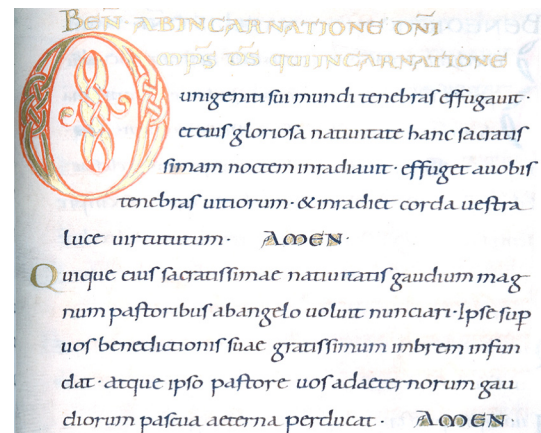 BEN̄· AB INCARNATIONE DNI
OMPS DS QUI INCARNATIONE
unigeniti sui mundi tenebras effugauit·
et eius gloriosa natiuitate hanc sacratis
simam noctem inradiauit· effuget a uobis
tenebras uitiorum· & inradiet corda uestra
luce uirtutum· AMEN·
Quique eius sacratissimae natiuitatis gaudium mag
num pastoribus ab angelo uoluit nunciari· Ipse sup
uos benedictionis suae gratissimum imbrem infun
dat· atque ipso pastore uos ad aeternorum gau
diorum pascua aeterna perducat· AMEN·